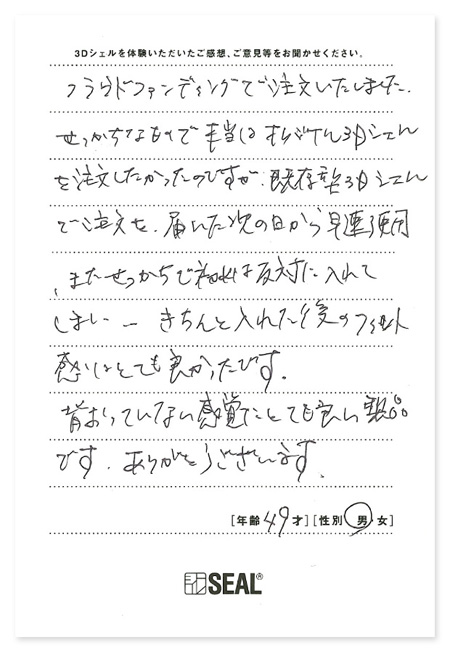 3Dシェルを体験いただいたご感想、ご意見等をお聞かせください。
クラウドファンディングで注文いたしました.
せっかちなもので本当は 3Dシェル
を注文したかったのですが.既存型3Dシェル
で注文を.届いた次の日から早速使用
、またせっかちで初めは反対に入れて
しまい ー きちんと入れた後のフィット
感はとても良かったです.
背おっていない感覚でとても良い製品
です.ありがとうございます.
[年齢 49才][性別 男・女]
SEAL®